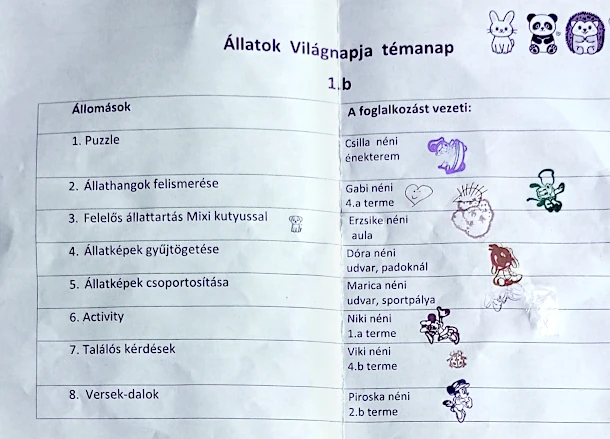 Állatok Világnapja témanap
1.b
Állomások
A foglalkozást vezeti:
1. Puzzle
Csilla néni
énekterem
2. Állathangok felismerése
Gabi néni
4.a terme
3. Felelős állattartás Mixi kutyussal
Erzsike néni
aula
4. Állatképek gyűjtögetése
Dóra néni
udvar, padoknál
5. Állatképek csoportosítása
Marica néni
udvar, sportpálya
6. Activity
Niki néni
1.a terme
7. Találós kérdések
Viki néni
4.b terme
8. Versek-dalok
Piroska néni
2.b terme